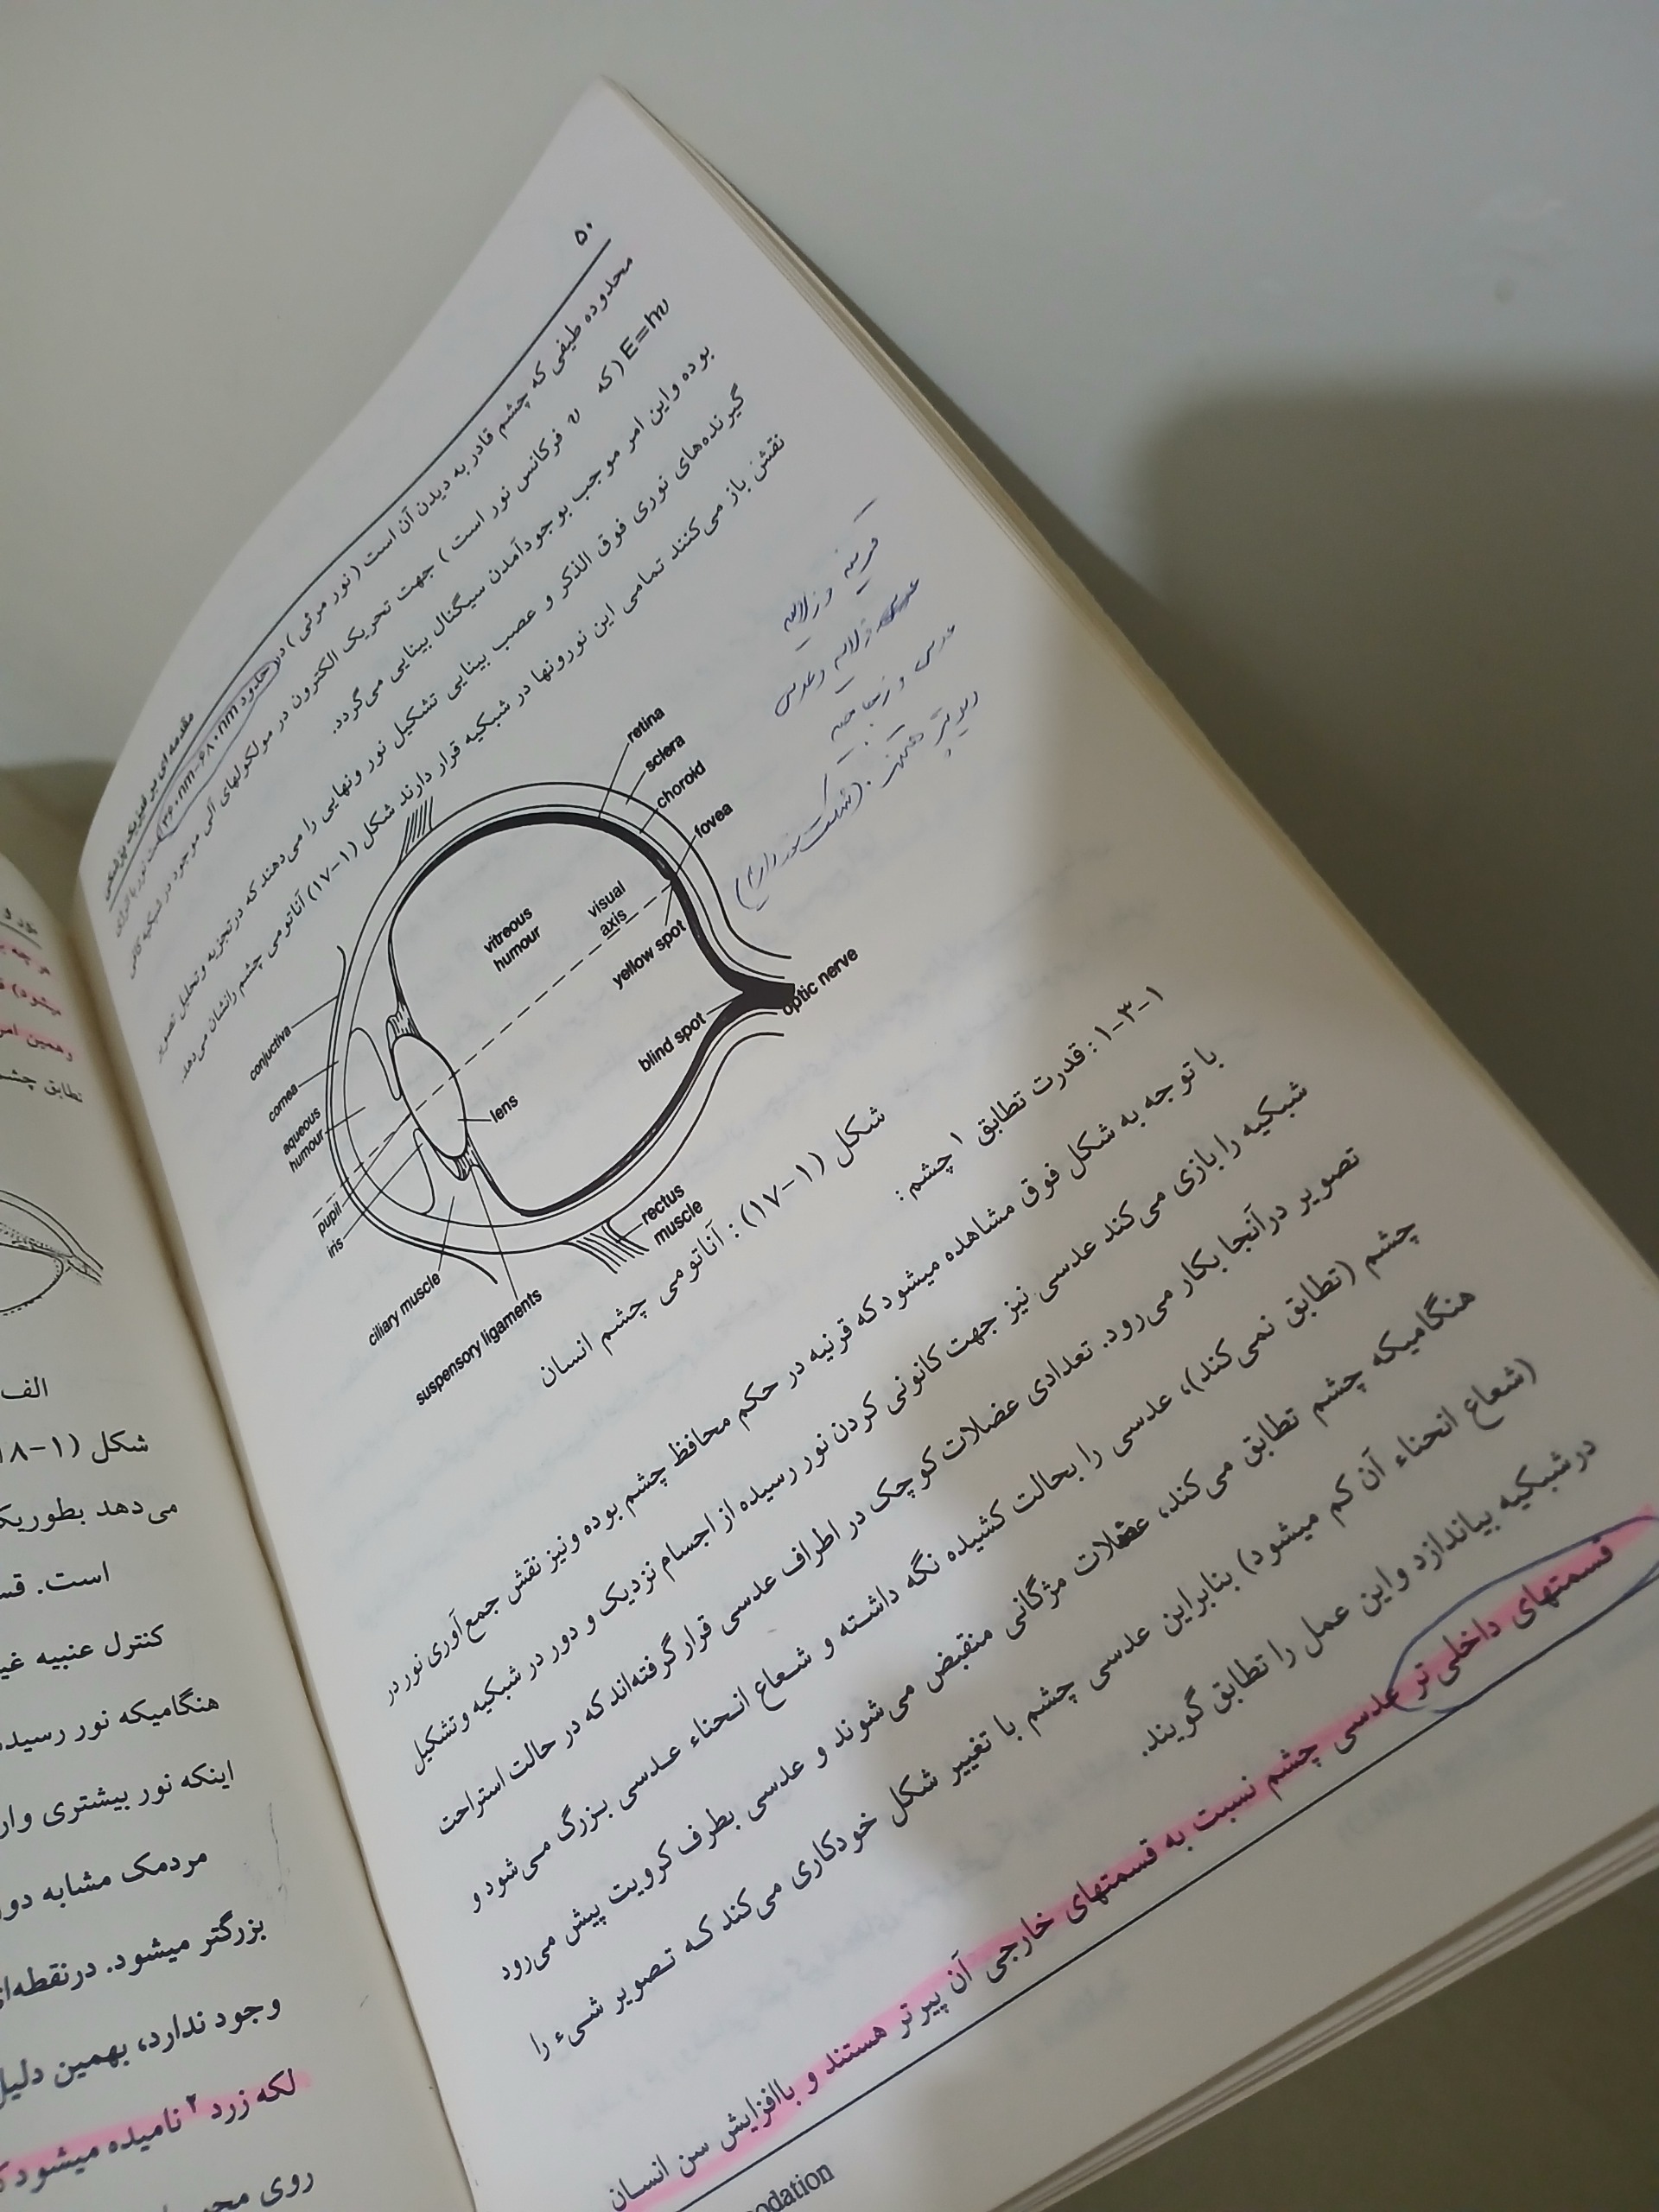 ۵۰
مقدمه ای بر فیزیک پزشکی
محدوده طیفی که چشم قادر به دیدن آن است (نور مرئی) در حدود ۳۶۰nm-۶۸۰nm است نور با انرژی
E=hν (که ν فرکانس نور است) جهت تحریک الکترون در مولکولهای آلی موجود در شبکیه کافی
بوده واین امر موجب بوجودآمدن سیگنال بینایی می‌گردد.
گیرنده‌های نوری فوق الذکر و عصب بینایی تشکیل نور ونهایی را می‌دهند که درتجزیه وتحلیل تصویر
نقش باز می‌کنند تمامی این نورونها در شبکیه قرار دارند شکل (۱-۱۷) آناتومی چشم رانشان می‌دهد.
قرنیه و زلالیه
زلالیه وعدسی
عدسی و زجاجیه
retina
sclera
choroid
fovea
visual
axis
vitreous
humour
yellow spot
optic nerve
blind spot
conjuctiva
cornea
aqueous
humour
lens
pupil
iris
rectus
muscle
ciliary muscle
suspensory ligaments
شکل (۱-۱۷): آناتومی چشم انسان
۱-۳-۱: قدرت تطابق ۱ چشم:
با توجه به شکل فوق مشاهده میشود که قرنیه در حکم محافظ چشم بوده ونیز نقش جمع‌آوری نور در
شبکیه را بازی می‌کند عدسی نیز جهت کانونی کردن نور رسیده از اجسام نزدیک و دور در شبکیه وتشکیل
تصویر درآنجا بکار می‌رود. تعدادی عضلات کوچک در اطراف عدسی قرار گرفته‌اند که در حالت استراحت
چشم (تطابق نمی‌کند)، عدسی را بحالت کشیده نگه داشته و شعاع انحناء عدسی بزرگ می‌شود و
هنگامیکه چشم تطابق می‌کند، عضلات مژگانی منقبض می‌شوند و عدسی بطرف کرویت پیش می‌رود
(شعاع انحناء آن کم میشود) بنابراین عدسی چشم با تغییر شکل خودکاری می‌کند که تصویر شیء را
درشبکیه بیاندازد واین عمل را تطابق گویند.
قسمتهای داخلی تر عدسی چشم نسبت به قسمتهای خارجی آن پیرتر هستند و باافزایش سن انسان
odation
تطابق چشم
الف
شکل (۱-۱۸
می‌دهد بطوریک
است. قس
کنترل عنبیه غی
هنگامیکه نور رسید
اینکه نور بیشتری وار
مردمک مشابه دو
بزرگتر میشود. درنقطه‌ا
وجود ندارد، بهمین دلیل
لکه زرد ۲ نامیده میشود ک
روی مح